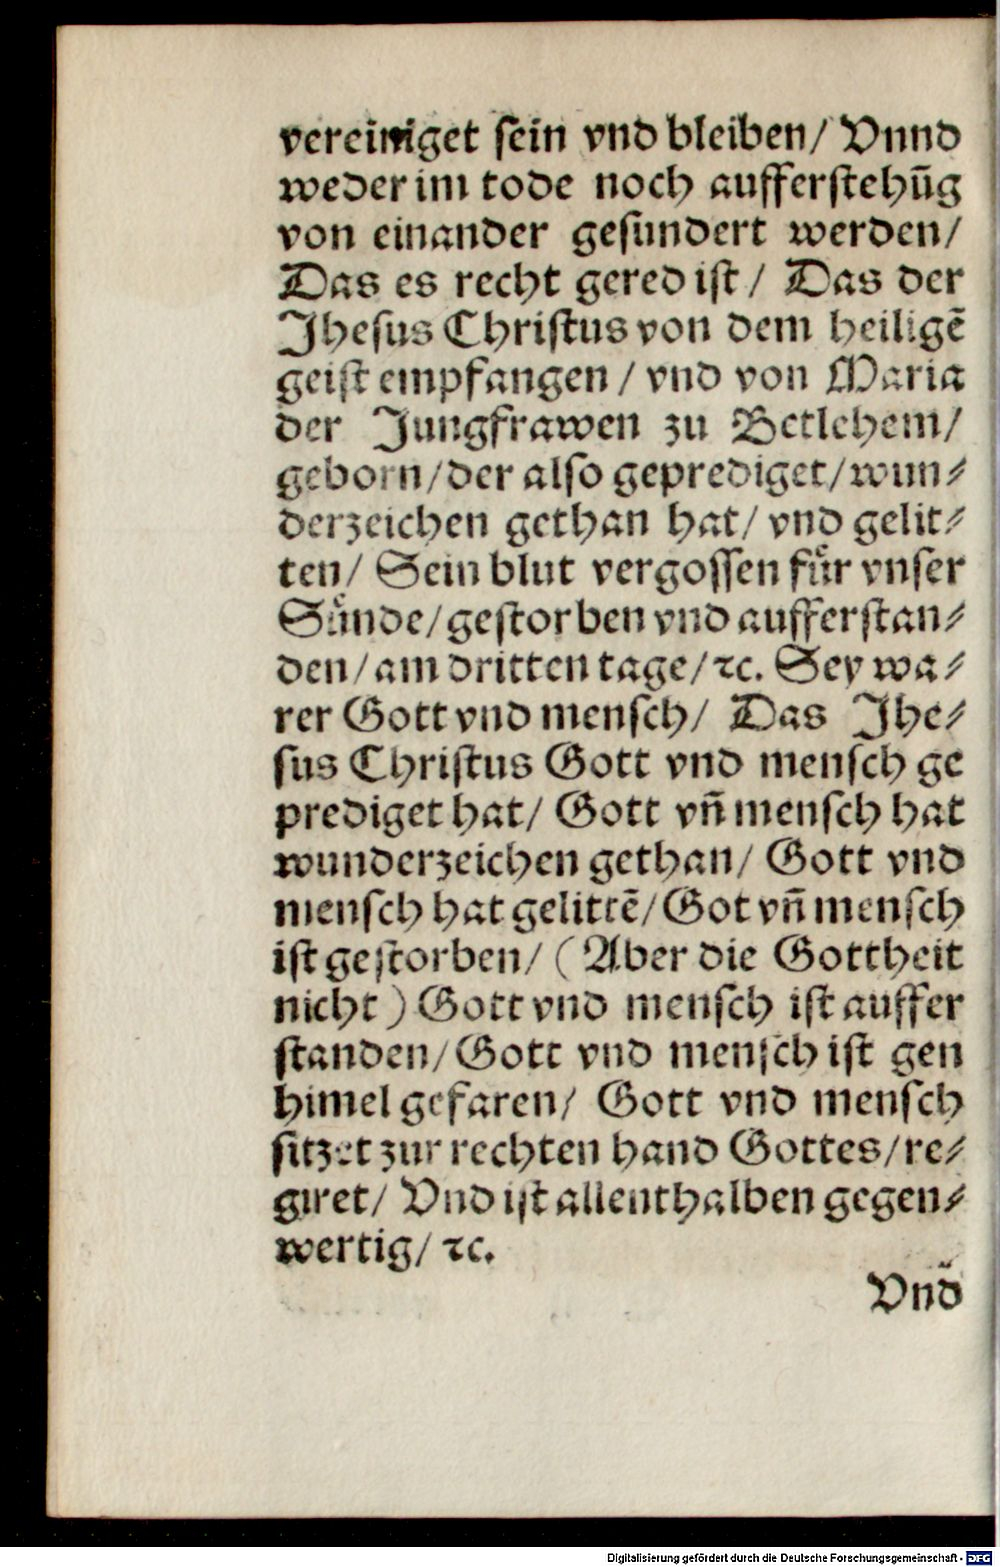 vereiniget ſein vnd bleiben/ Vnnd
weder im tode noch aufferſtehūg
von einander geſundert werden/
Das es recht gered iſt/ Das der
Jheſus Chriſtus von dem heiligē
geiſt empfangen/ vnd von Maria
der Jungfrawen zu Betlehem/
geborn/der alſo geprediget/wun⸗
derzeichen gethan hat/ vnd gelit⸗
ten/ Sein blut vergoſſen fuͤr vnſer
Suͤnde/geſtorben vnd aufferſtan⸗
den/am dritten tage/ꝛc. Sey wa⸗
rer Gott vnd menſch/ Das Jhe⸗
ſus Chriſtus Gott vnd menſch ge
prediget hat/ Gott vn̄ menſch hat
wunderzeichen gethan/ Gott vnd
menſch hat gelittē/Got vn̄ menſch
iſt geſtorben/ (Aber die Gottheit
nicht) Gott vnd menſch iſt auffer
ſtanden/Gott vnd menſch iſt gen
himel gefaren/ Gott vnd menſch
ſitzet zur rechten hand Gottes/re⸗
giret/ Vnd iſt allenthalben gegen⸗
wertig/ ꝛc.
Vnd
Digitalisierung gefördert durch die Deutsche Forschungsgemeinschaft - DFG